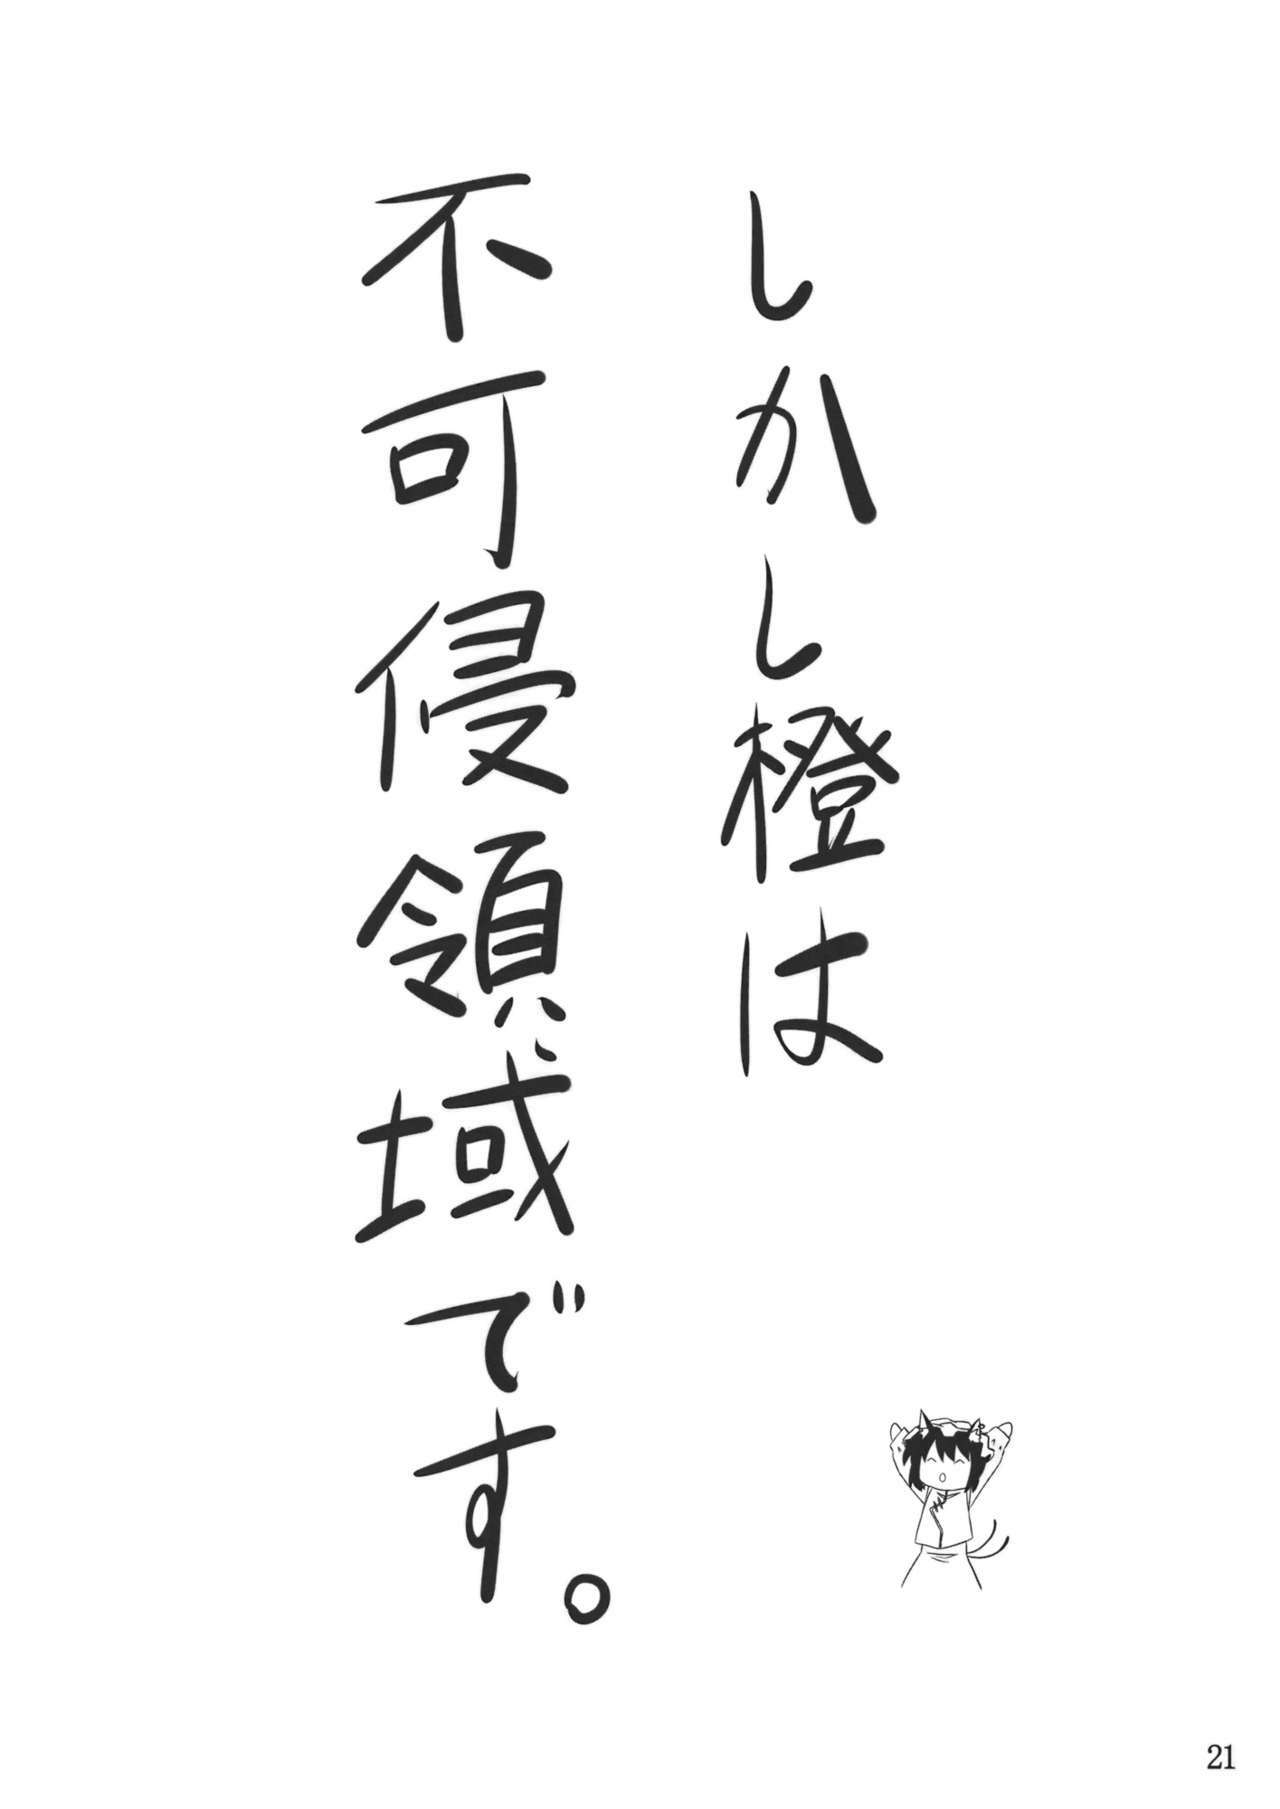 しかし橙は
不可侵領域です。
21